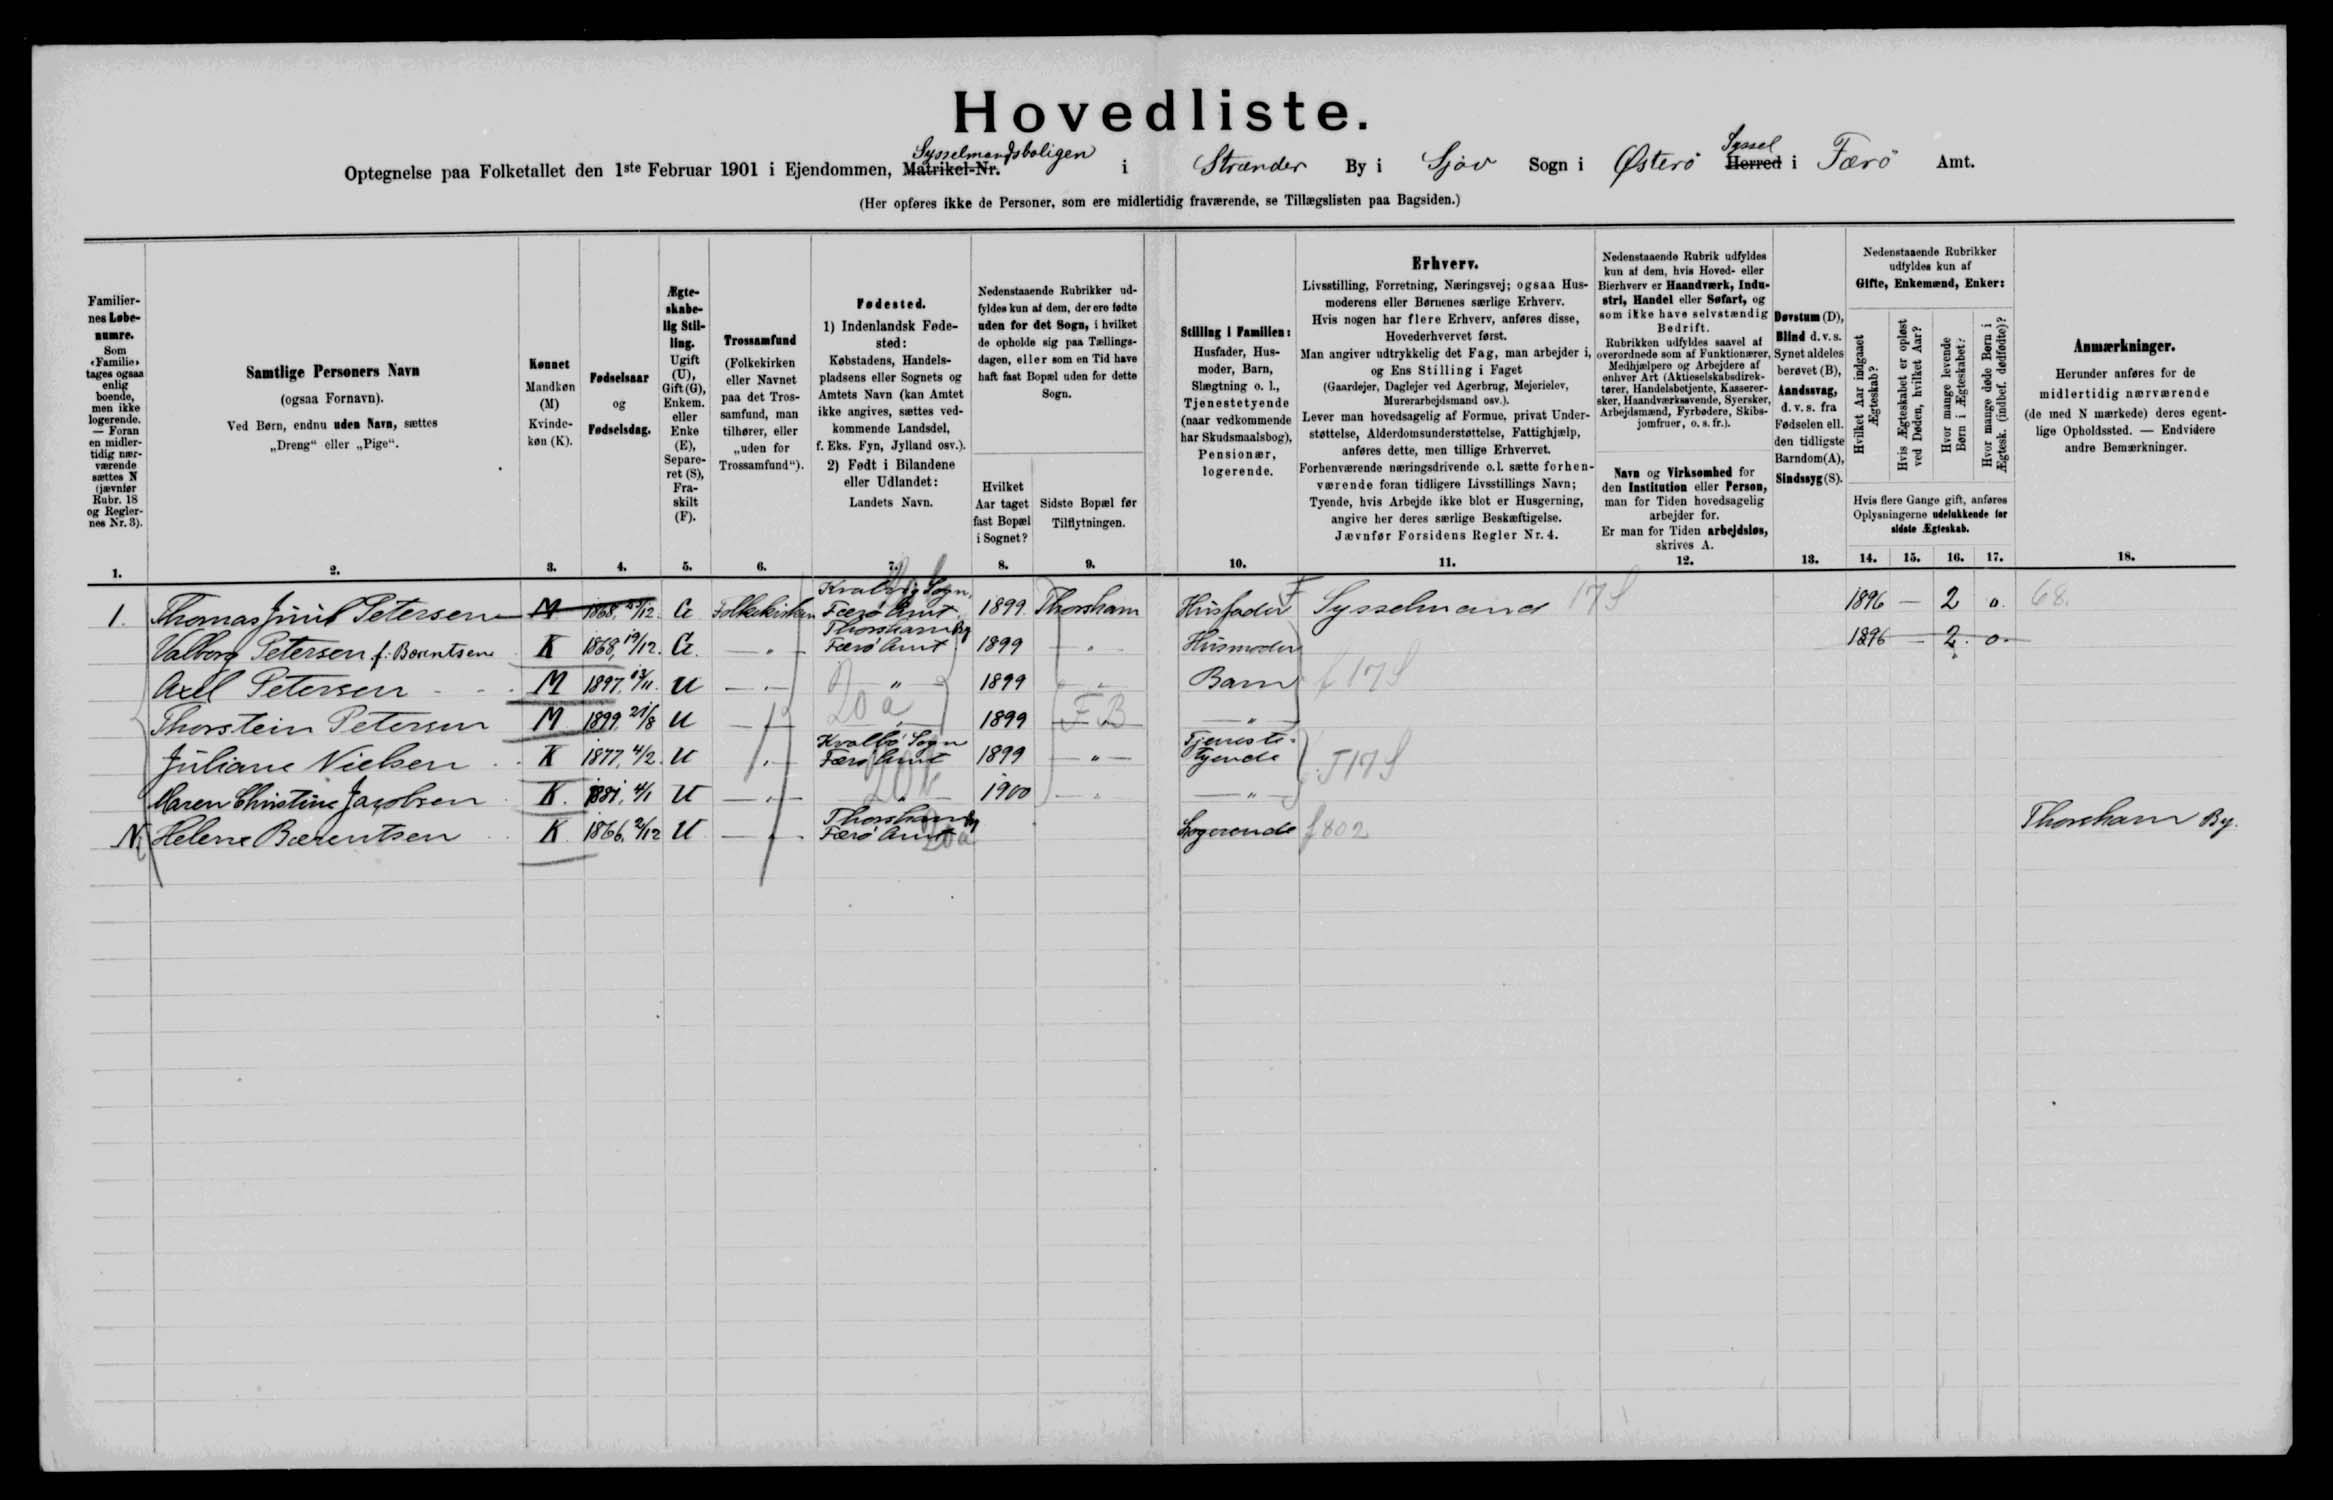 Hovedliste.
Optegnelse paa Folketallet den 1ste Februar 1901 i Ejendommen, Matrikel-Nr. Sysselmandsboligen i Strænder By i Sjov Sogn i Østerö Herred Syssel i Færö Amt.
(Her opføres ikke de Personer, som ere midlertidig fraværende, se Tillægslisten paa Bagsiden.)
Familiernes Løbenumre.
Som «Familie» tages ogsaa enlig boende, men ikke logerende. — Foran en midlertidig nærværende sættes N (jævnfør Rubr. 18 og Reglernes Nr. 3).
Samtlige Personers Navn
(ogsaa Fornavn).
Ved Børn, endnu uden Navn, sættes
„Dreng“ eller „Pige“.
Kønnet
Mandkøn
(M)
Kvindekøn (K).
Fødselsaar
og
Fødselsdag.
Ægteskabelig Stilling.
Ugift (U), Gift (G), Enkem. eller Enke (E), Separeret (S), Fraskilt (F).
Trossamfund
(Folkekirken eller Navnet paa det Trossamfund, man tilhører, eller „uden for Trossamfund“).
Fødested.
1) Indenlandsk Fødested:
Købstadens, Handelspladsens eller Sognets og Amtets Navn (kan Amtet ikke angives, sættes vedkommende Landsdel, f. Eks. Fyn, Jylland osv.).
2) Født i Bilandene eller Udlandet:
Landets Navn.
Nedenstaaende Rubrikker udfyldes kun af dem, der ere fødte uden for det Sogn, i hvilket de opholde sig paa Tællingsdagen, eller som en Tid have haft fast Bopæl uden for dette Sogn.
Hvilket Aar taget fast Bopæl i Sognet?
Sidste Bopæl før Tilflytningen.
Stilling i Familien:
Husfader, Husmoder, Barn, Slægtning o. l., Tjenestetyende (naar vedkommende har Skudsmaalsbog), Pensionær, logerende.
Erhverv.
Livsstilling, Forretning, Næringsvej; ogsaa Husmoderens eller Børnenes særlige Erhverv.
Hvis nogen har flere Erhverv, anføres disse, Hovederhvervet først.
Man angiver udtrykkelig det Fag, man arbejder i, og Ens Stilling i Faget
(Gaardejer, Daglejer ved Agerbrug, Mejerielev, Murerarbejdsmand osv.).
Lever man hovedsagelig af Formue, privat Understøttelse, Alderdomsunderstøttelse, Fattighjælp, anføres dette, men tillige Erhvervet.
Forhenværende næringsdrivende o.l. sætte forhenværende foran tidligere Livsstillings Navn;
Tyende, hvis Arbejde ikke blot er Husgerning, angive her deres særlige Beskæftigelse.
Jævnfør Forsidens Regler Nr. 4.
Nedenstaaende Rubrik udfyldes kun af dem, hvis Hoved- eller Bierhverv er Haandværk, Industri, Handel eller Søfart, og som ikke have selvstændig Bedrift.
Rubrikken udfyldes saavel af overordnede som af Funktionærer, Medhjælpere og Arbejdere af enhver Art (Aktieselskabsdirektører, Handelsbetjente, Kasserersker, Haandværkssvende, Syersker, Arbejdsmænd, Fyrbødere, Skibsjomfruer, o. s. fr.).
Navn og Virksomhed for den Institution eller Person, man for Tiden hovedsagelig arbejder for.
Er man for Tiden arbejdsløs, skrives A.
Døvstum (D), Blind d. v. s. Synet aldeles berøvet (B), Aandssvag, d. v. s. fra Fødselen ell. den tidligste Barndom (A), Sindssyg (S).
Nedenstaaende Rubrikker udfyldes kun af
Gifte, Enkemænd, Enker:
Hvilket Aar indgaaet Ægteskab?
Hvis Ægteskabet er opløst ved Døden, hvilket Aar?
Hvor mange levende Børn i Ægteskabet?
Hvor mange døde Børn i Ægtesk. (indbef. dødfødte)?
Hvis flere Gange gift, anføres Oplysningerne udelukkende for sidste Ægteskab.
Anmærkninger.
Herunder anføres for de midlertidig nærværende (de med N mærkede) deres egentlige Opholdssted. — Endvidere andre Bemærkninger.
1. 2. 3. 4. 5. 6. 7. 8. 9. 10. 11. 12. 13. 14. 15. 16. 17. 18.
1. Thomas Juul Petersen M 1868, /12. G Folkekirken Kvalvig Sogn, Færö Amt 1899 Thorshavn Husfader F Sysselmand 17 S 1896 — 2 0. 68.
Valborg Petersen f. Bærentsen K 1868, 19/12. G. — " — Thorshavn By Færö Amt 1899 — " — Husmoder 1896 — 2. 0
Axel Petersen M 1897, 13/11. U — " — " 1899 — " — Barn f 17 S
Thorstein Petersen M 1899, 21/8 U — " — 20 a 1899 F B — " —
Juliane Nielsen K 1877, 4/2. U — " — Kvalbö Sogn Færö Amt 1899 — " — Tjenestetyende T 17 S
Maren Christine Jacobsen K. 1881, 4/1 U — " — " 1900 — " — — " —
N. Helene Bærentsen K. 1866, 2/12 U — " — Thorshavn By Færö Amt 20 a Logerende f 802 Thorshavn By.